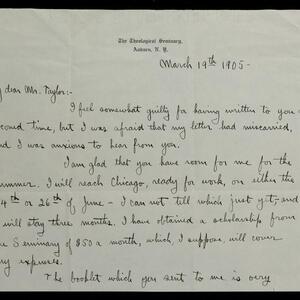 The Theological Seminary,
Auburn, N. Y.
March 19th 1905-
y dear Mr. Taylor:-
I feel somewhat guilty for having written to you a
econd time, but I was afraid that my letter had miscarried,
nd I was anxious to hear from you.
I am glad that you have room for me for the
ummer. I will reach Chicago, ready for work, on either the
4th or 26th of June - I can not tell which just yet - and
will stay three months. I have obtained a scholarship from
e Seminary of $50 a month, which, I suppose, will cover
y expenses.
The booklet which you sent to me is very